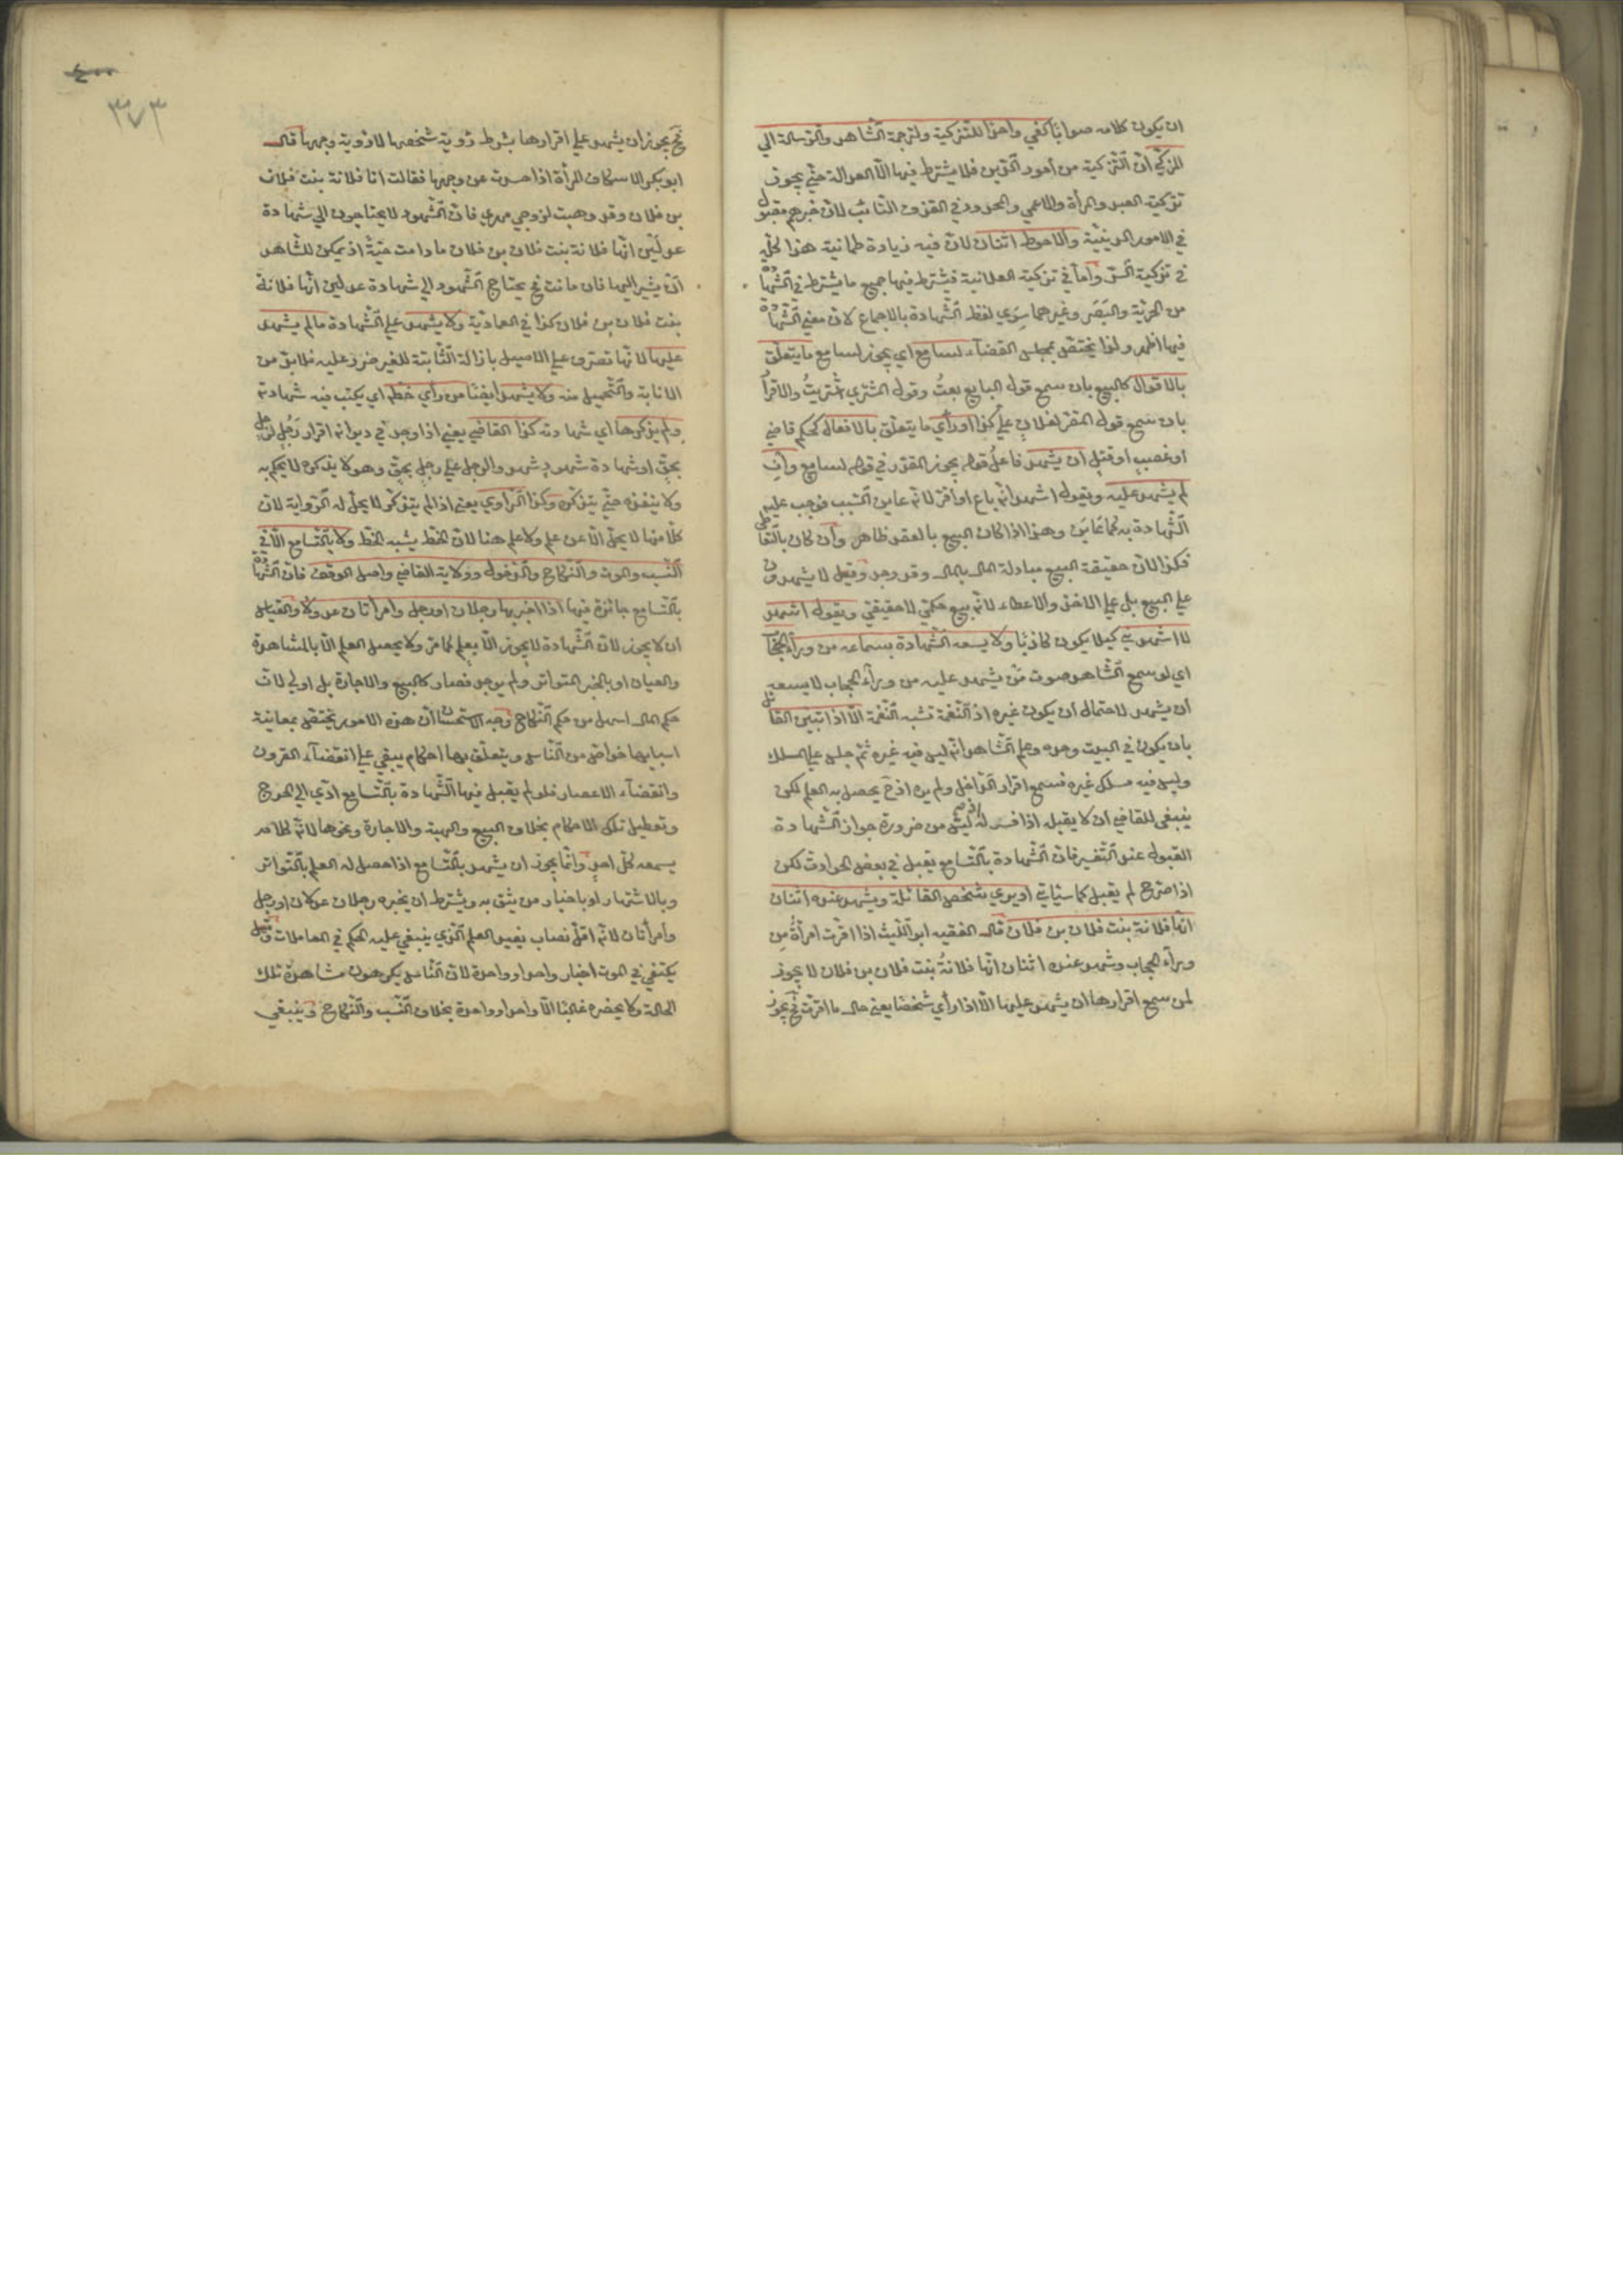 ان يكون كلامه صوابا كفي واحدا للتزكية ولترجمة الشاهد والرسالة الي
المزكي لان التزكية من امور الدين فلا يشترط فيها الا العدالة حتي يجوز
تزكية العبد والمرأة والاعمي والمحدود في القذف التائب لان خبرهم مقبول
في الامور الدينية والاحوط اثنان لان فيه زيادة طمانية هذا كله
في تزكية السر واما في تزكية العلانية فيشترط فيها جميع ما يشترط في الشهادة
من الحرية والبصر وغيرهما سوي لفظ الشهادة بالاجماع لان معني الشهادة
فيها اظهر ولذا يختص بمجلس القضاء لسامع اي يجوز لسامع ما يتعلق
بالاقوال كالبيع بان سمع قول البايع بعت وقول المشتري اشتريت والاقرار
بان سمع قول المقر لفلان علي كذا او رأي ما يتعلق بالافعال كحكم قاضي
او غصب او قتل ان يشهد فاعل قوله يجوز المقدر في قوله لسامع وان
لم يشهد عليه ويقول اشهد انه باع او اقر لانه عاين السبب فوجب عليه
الشهادة به كما عاين وهذا اذا كان البيع بالعقد ظاهر وان كان بالتعاطي
فكذا لان حقيقة البيع مبادلة المال بالمال وقد وجد وقيل لا يشهدون
علي البيع بل علي الاخذ والاعطاء لانه بيع حكمي لا حقيقي ويقول اشهد
لا اشهدني كيلا يكون كاذبا ولا يسعه الشهادة بسماعه من وراء الحجاب
اي لو سمع الشاهد صوت من يشهد عليه من وراء الحجاب لا يسعه
ان يشهد لاحتمال ان يكون غيره اذ النغمة تشبه النغمة الا اذا تبين القائل
بان يكون في البيت وحده وعلم الشاهد انه ليس فيه غيره ثم جلس علي المسلك
وليس فيه مسلك غيره فسمع اقرار الداخل ولم يره اذ ح يحصل به العلم لكن
ينبغي للقاضي ان لا يقبله اذا فسر له اذ ليس من ضرورة جواز الشهادة
القبول عند التفسير فان الشهادة بالتسامع يقبل في بعض الحوادث لكن
اذا صرح لم يقبل كما سيأتي او يري شخص القائلة ويشهد عنده اثنان
انها فلانة بنت فلان بن فلان قال الفقيه ابو الليث اذا اقرت امرأة من
وراء الحجاب وشهد عنده اثنان انها فلانة بنت فلان بن فلان لا يجوز
لمن سمع اقرارها ان يشهد عليها الا اذا رأي شخصا يعني حال ما اقرت فح يجوز
٣٧٣
فح يجوز ان يشهد علي اقرارها بشرط رؤية شخصها لا رؤية وجهها قال
ابو بكر الاسكاف المرأة اذا حسرت عن وجهها فقالت انا فلانة بنت فلان
بن فلان وقد وهبت لزوجي مهري فان الشهود لا يحتاجون الي شهادة
عدلين انها فلانة بنت فلان بن فلان ما دامت حية اذ يمكن للشاهد
ان يشير اليها فان ماتت فح يحتاج الشهود الي شهادة عدلين انها فلانة
بنت فلان بن فلان كذا في العمادية ولا يشهد علي الشهادة ما لم يشهد
عليها لانها تصرف علي الاصيل بازالة الثابتة للغير ضرر عليه فلا بد من
الانابة والتحميل منه ولا يشهد ايضا من رأي خطه اي يكتب فيه شهادته
ولم يذكرها اي شهادته كذا القاضي يعني اذا وجد في ديوانه اقرار رجل لرجل
بحق او شهادة شهود شهدوا لرجل علي رجل بحق وهو لا يذكره لا يحكم به
ولا ينفذه حتي يتذكره وكذا الراوي يعني اذا لم يتذكر لا يحل له الرواية لان
كلا منها لا يحل الا عن علم ولا علم هنا لان الخط يشبه الخط ولا بالتسامع الا في
النسب والموت والنكاح والدخول وولاية القاضي واصل الوقف فان الشهادة
بالتسامع جائزة فيها اذا اخبر بها رجلان او رجل وامرأتان عدول والقياس
ان لا يجوز لان الشهادة لا يجوز الا بعلم كما مر ولا يحصل العلم الا بالمشاهدة
والعيان او بالخبر المتواتر ولم يوجد فصار كالبيع والاجارة بل اولي لان
حكم المال اسهل من حكم النكاح وجه الاستحسان ان هذه الامور يختص بمعاينة
اسبابها خواص من الناس ويتعلق بها احكام يبقي علي انقضاء القرون
وانقضاء الاعصار فلو لم يقبل فيها الشهادة بالتسامع ادي الي الحرج
وتعطيل تلك الاحكام بخلاف البيع والهبة والاجارة ونحوها لانه كلام
يسمعه كل احد وانما يجوز ان يشهد بالتسامع اذا حصل له العلم بالتواتر
وبالاشتهار او باخبار من يثق به ويشترط ان يخبره رجلان عدلان او رجل
وامرأتان لانه اقل نصاب يفيد العلم الذي ينبغي عليه الحكم في المعاملات وقيل
يكتفي في الموت اخبار واحد او واحدة لان الناس يكرهون مشاهدة تلك
الحالة ولا يحضره غالبا الا واحد او واحدة بخلاف النسب والنكاح وينبغي